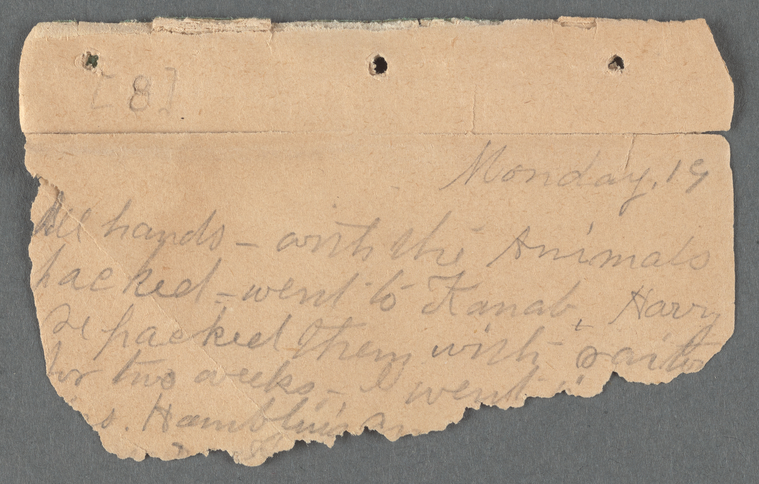 [8]
Monday, 19
All hands - with the Animals
packed - went to Kanab, Harry
repacked them with
for two weeks - I went
Hamblin